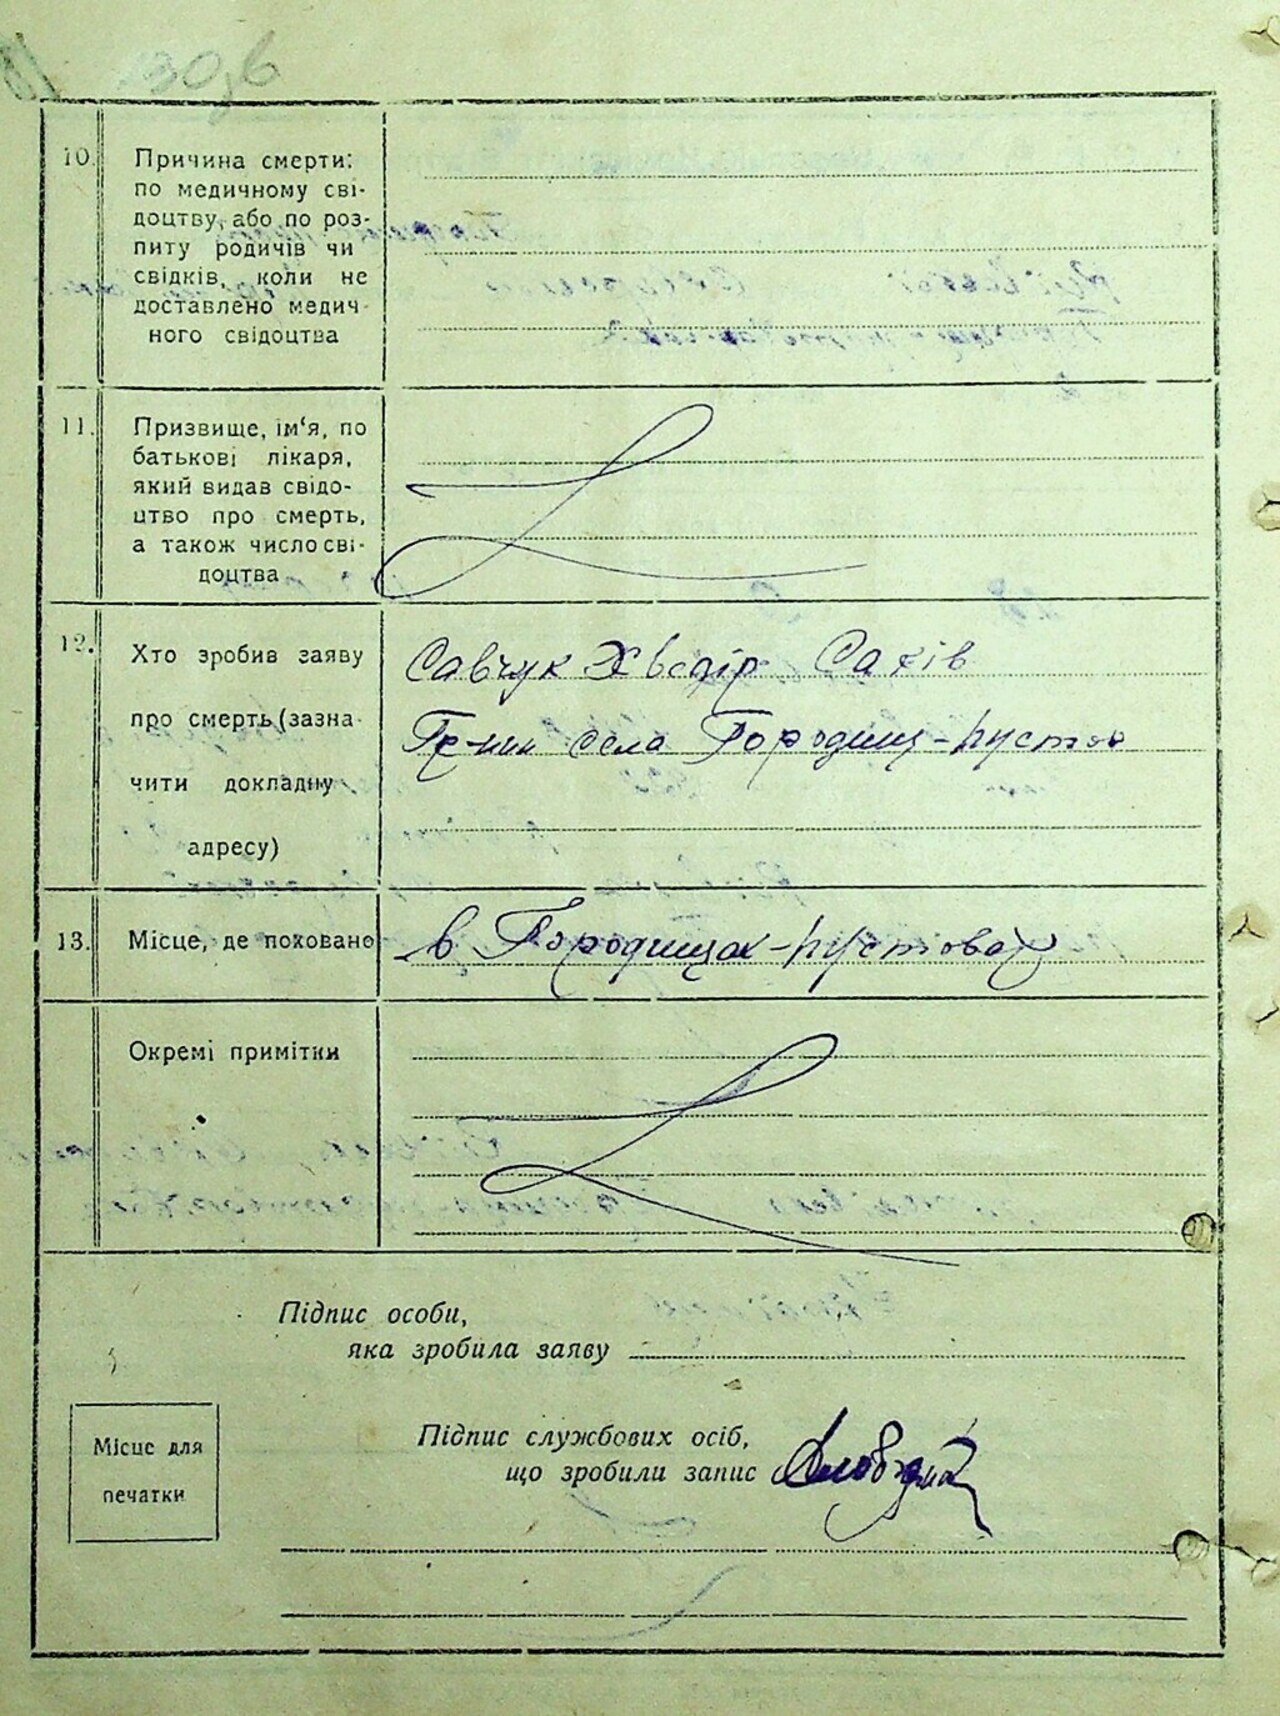 30зв
10. Причина смерти:
по медичному сві-
доцтву, або по роз-
питу родичів чи
свідків, коли не
доставлено медич-
ного свідоцтва
11. Призвище, ім‘я, по
батькові лікаря,
який видав свідо-
цтво про смерть,
а також число сві-
доцтва
12. Хто зробив заяву
про смерть (зазна-
чити докладну
адресу)
Савчук Хведір
села Городищ-пустов
13. Місце, де поховано
в Городищах-пустовах
Окремі примітки
Підпис особи,
яка зробила заяву
Підпис службових осіб,
що зробили запис
Місце для
печатки